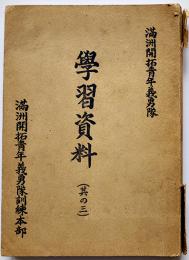 満洲開拓青年義勇隊
學習資料
(其の三)
満洲開拓青年義勇隊訓練本部